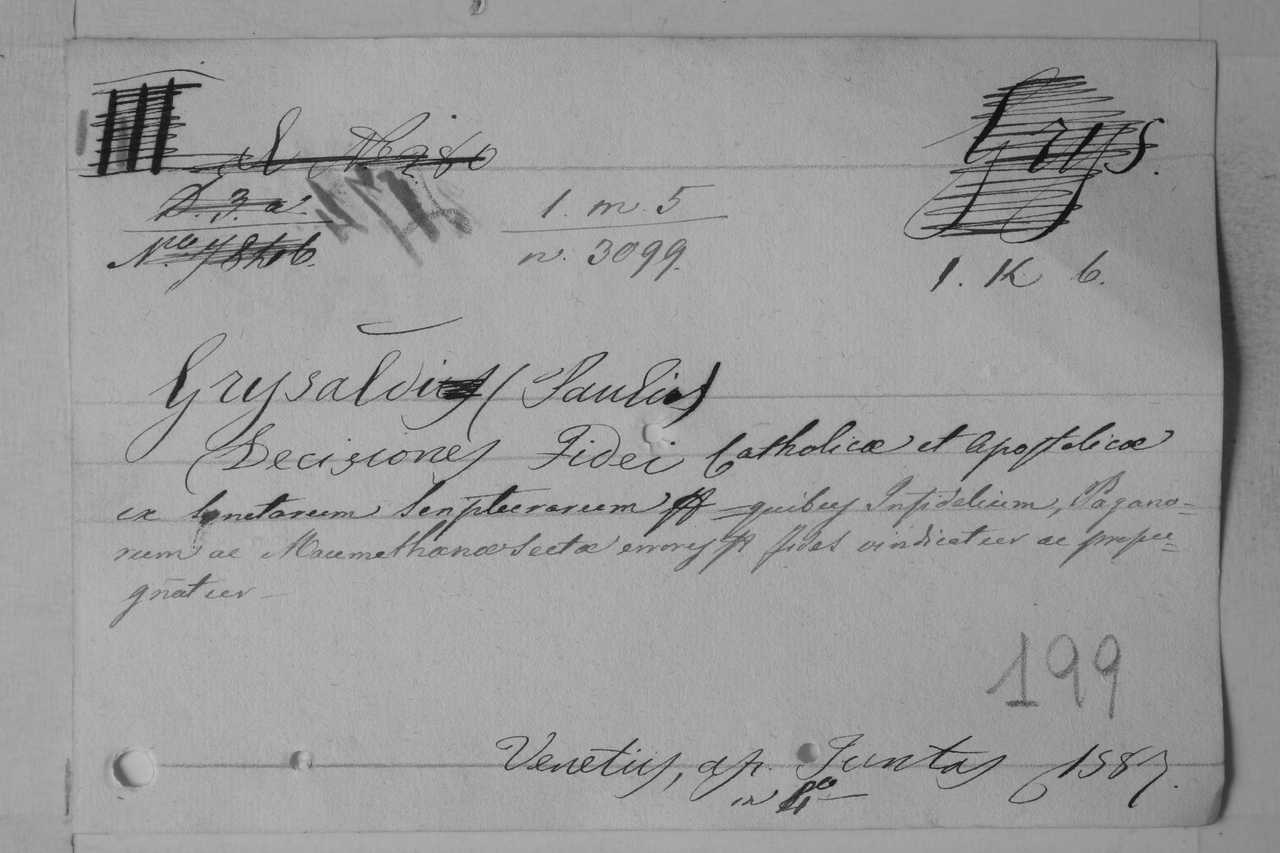 Grys.
D. 3. a.
1. m. 5
n. 3099.
1. K 6.
Grysaldi (Paulus)
Decisiones Fidei Catholicæ et Apostolicæ
ex Snctarum Scripturarum ff quibus Infidelium, Pagano=
rum ac Maumethanæ Sectæ errores ff fides vindicatur ac propu=
gnatur
199
Venetiis, ap. Juntas 1587.
in 4º